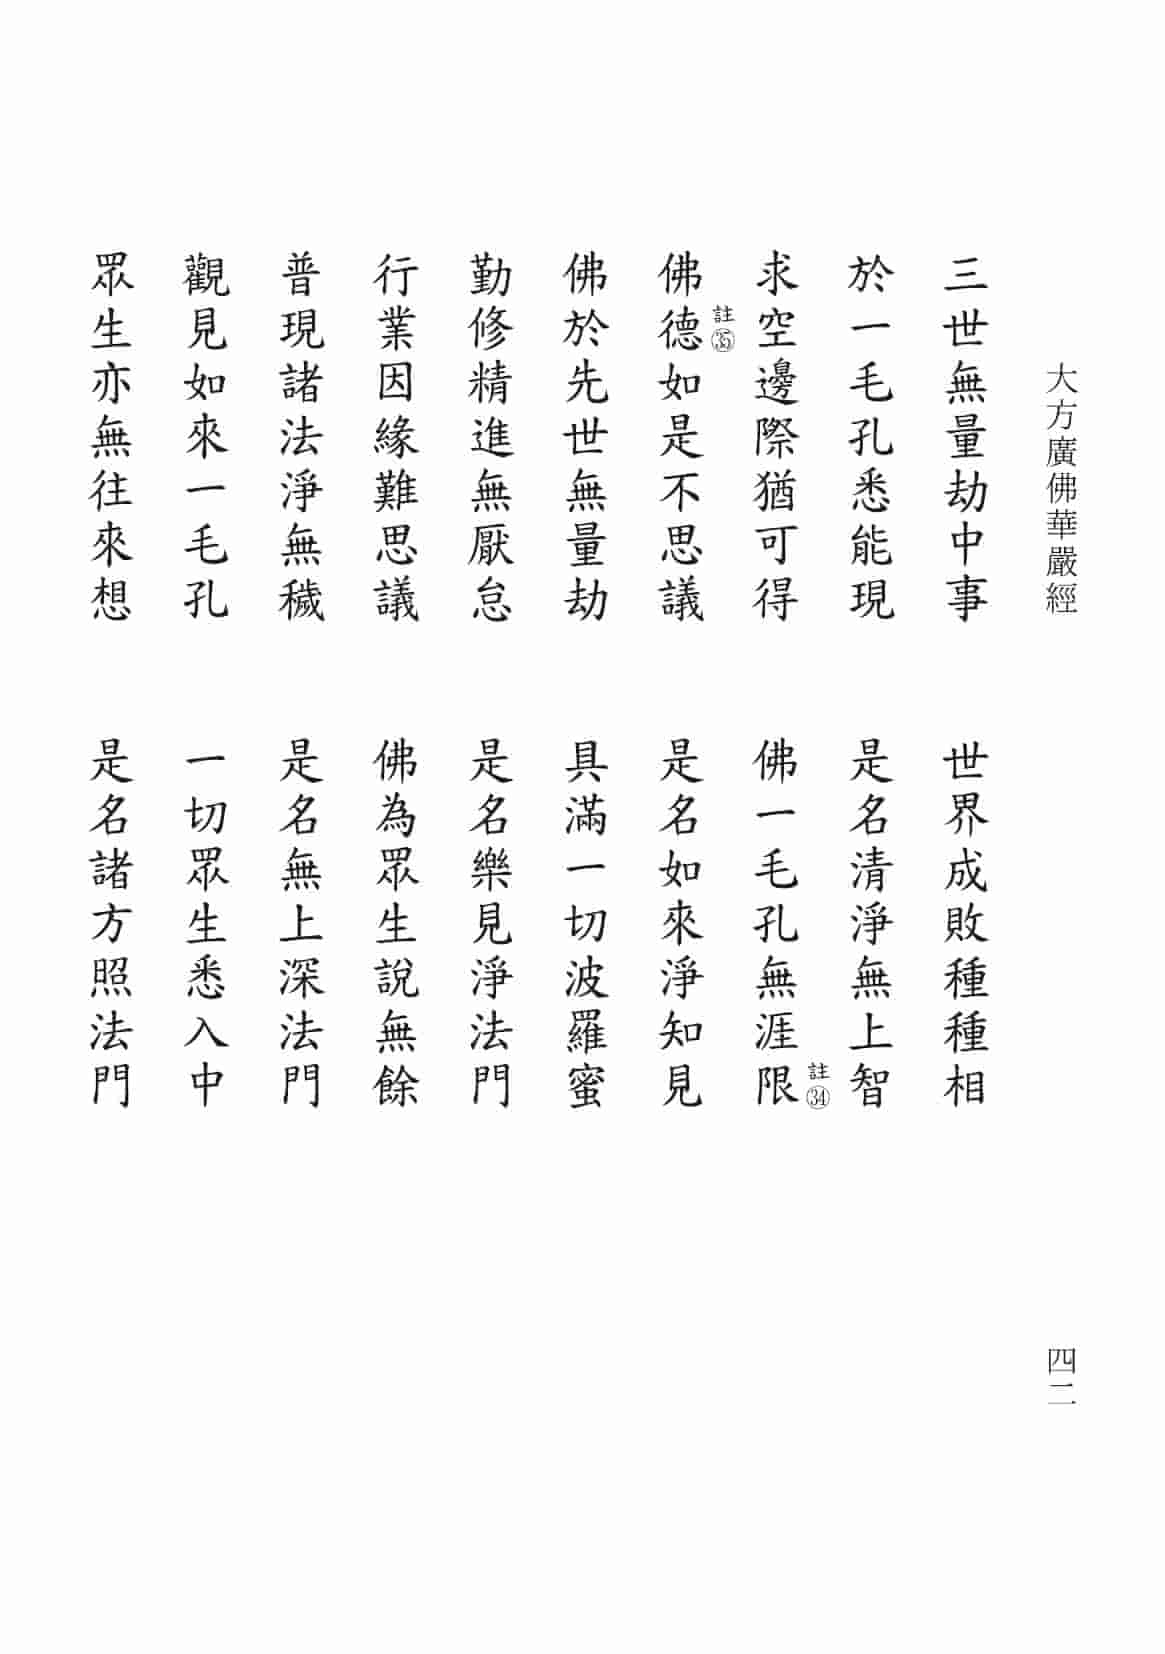 大方廣佛華嚴經
三世無量劫中事　世界成敗種種相
於一毛孔悉能現　是名清淨無上智
求空邊際猶可得　佛一毛孔無涯限註㉞
佛德註㉟如是不思議　是名如來淨知見
佛於先世無量劫　具滿一切波羅蜜
勤修精進無厭怠　是名樂見淨法門
行業因緣難思議　佛為眾生說無餘
普現諸法淨無穢　是名無上深法門
觀見如來一毛孔　一切眾生悉入中
眾生亦無往來想　是名諸方照法門
四二